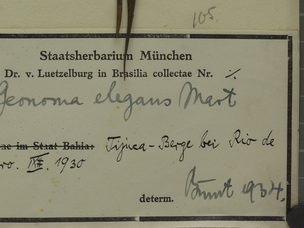 105
Staatsherbarium München
Dr. v. Luetzelburg in Brasilia collectae Nr. ./.
Geonoma elegans Mart
ae im Staat Bahia: Tijuca-Berge bei Rio de
ro. 1930
determ. Burret 1934.